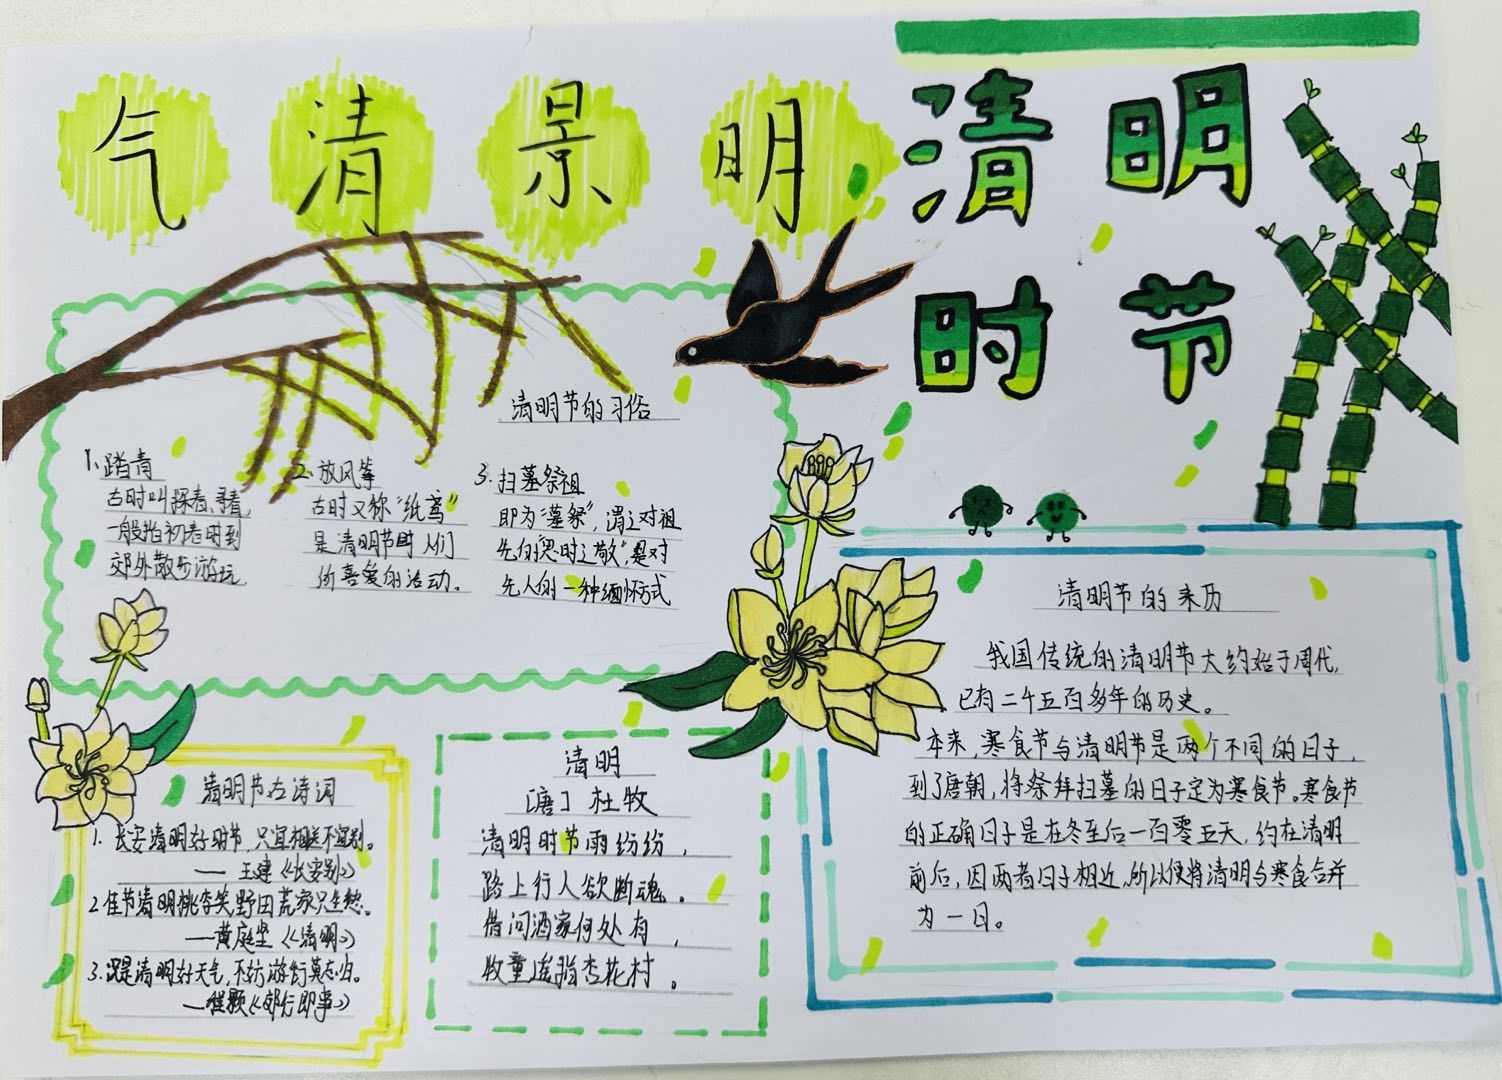 气清景明
清明
时节
清明节的习俗
1、踏青
古时叫探春、寻春
一般指初春时到
郊外散步游玩
2、放风筝
古时又称“纸鸢”
是清明节时人们
所喜爱的活动。
3、扫墓祭祖
即为“墓祭”，谓之对祖
先的“思时之敬”，是对
先人的一种缅怀方式
清明节古诗词
1、长安清明好时节，只宜相送不宜别。
——王建《长安别》
2、佳节清明桃李笑,野田荒冢只生愁。
——黄庭坚《清明》
3、况是清明好天气，不妨游衍莫忘归。
——程颢《郊行即事》
清明
［唐］杜牧
清明时节雨纷纷，
路上行人欲断魂。
借问酒家何处有，
牧童遥指杏花村。
清明节的来历
我国传统的清明节大约始于周代，
已有二千五百多年的历史。
本来，寒食节与清明节是两个不同的日子，
到了唐朝，将祭拜扫墓的日子定为寒食节。寒食节
的正确日子是在冬至后一百零五天，约在清明
前后，因两者日子相近，所以便将清明与寒食合并
为一日。